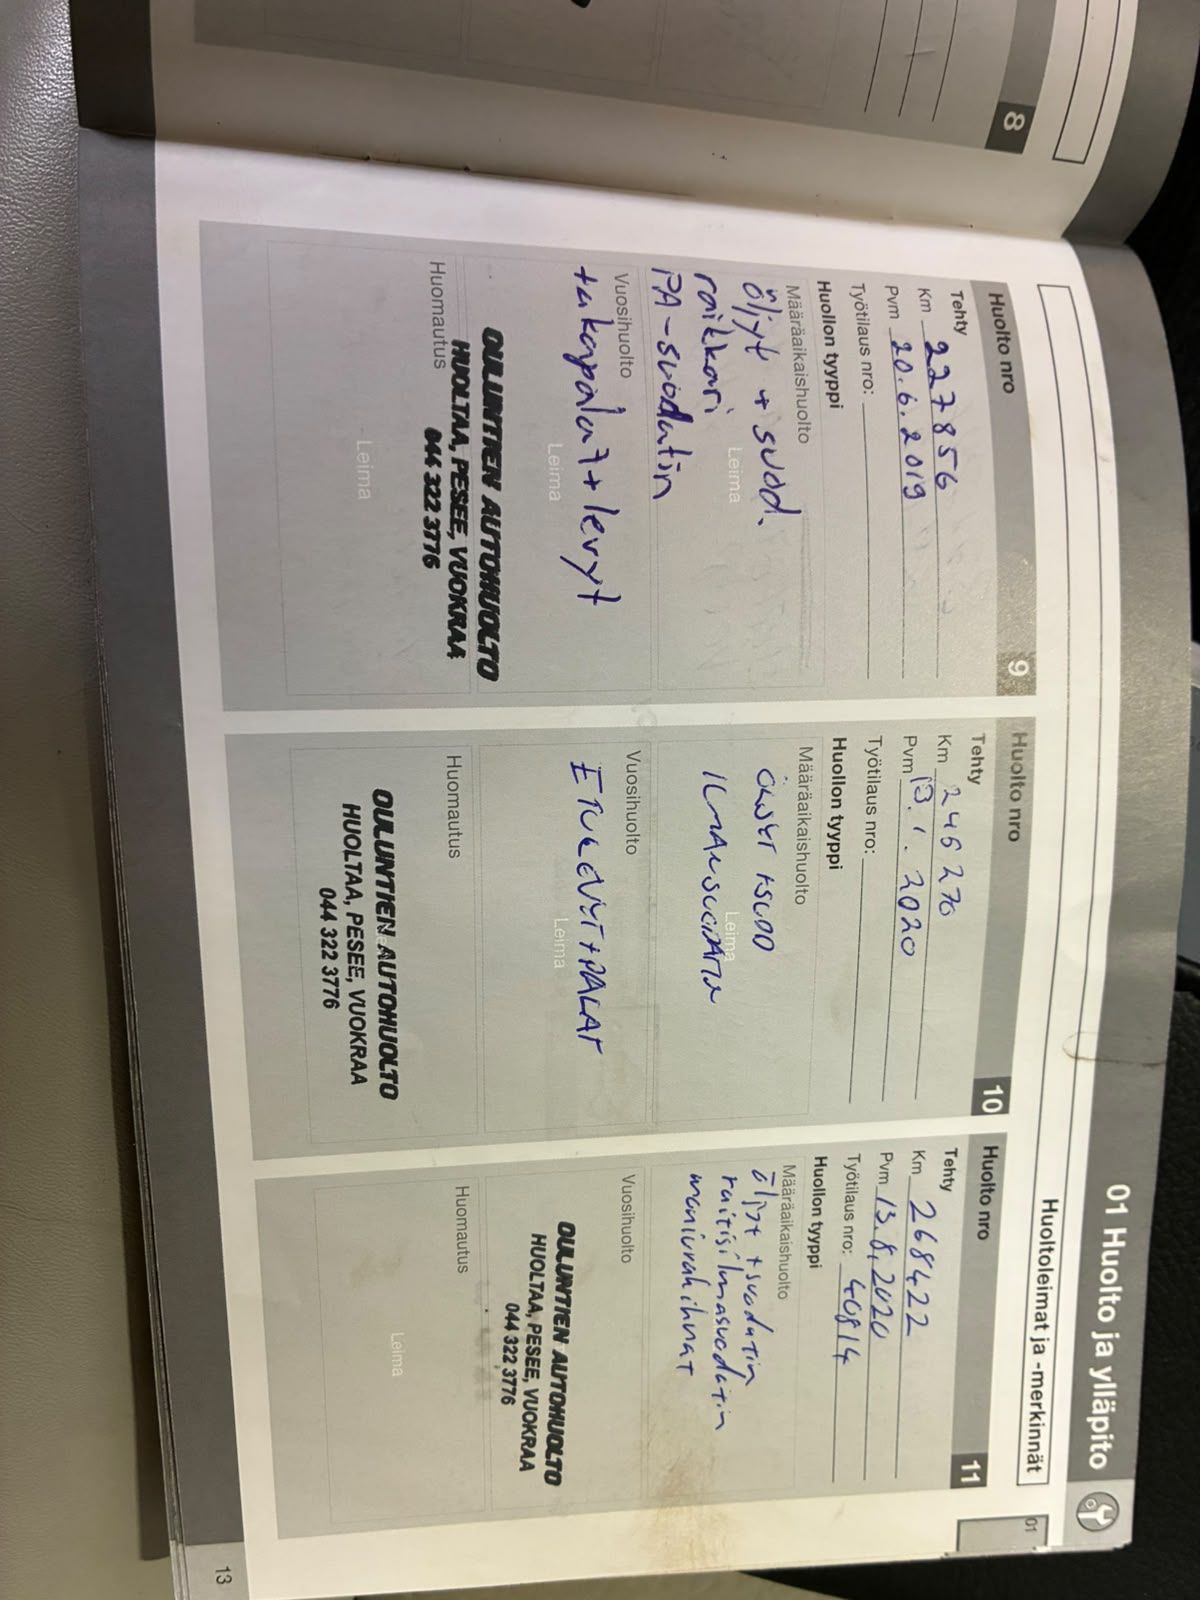 8
01 Huolto ja ylläpito
Huoltoleimat ja -merkinnät
01
Huolto nro 9
Tehty
Km 227856
Pvm 20.6.2019
Työtilaus nro:
Huollon tyyppi
Määräaikaishuolto
öljyt + suod.
raikkari
Leima
PA-suodatin
Vuosihuolto
takapalat + levyt
Leima
OULUNTIEN AUTOHUOLTO
HUOLTAA, PESEE, VUOKRAA
044 322 3776
Huomautus
Leima
Huolto nro 10
Tehty
Km 246270
Pvm 13.1.2020
Työtilaus nro:
Huollon tyyppi
Määräaikaishuolto
ÖLJYT + SUOD
Leima
ILMANSUODATIN
Vuosihuolto
ETULEVYT + PALAT
Leima
Huomautus
OULUNTIEN AUTOHUOLTO
HUOLTAA, PESEE, VUOKRAA
044 322 3776
Huolto nro 11
Tehty
Km 268422
Pvm 13.8.2020
Työtilaus nro: 40814
Huollon tyyppi
Määräaikaishuolto
öljyt + suodatin
raitisilmasuodatin
moniurahihnat
Vuosihuolto
OULUNTIEN AUTOHUOLTO
HUOLTAA, PESEE, VUOKRAA
044 322 3776
Huomautus
Leima
13